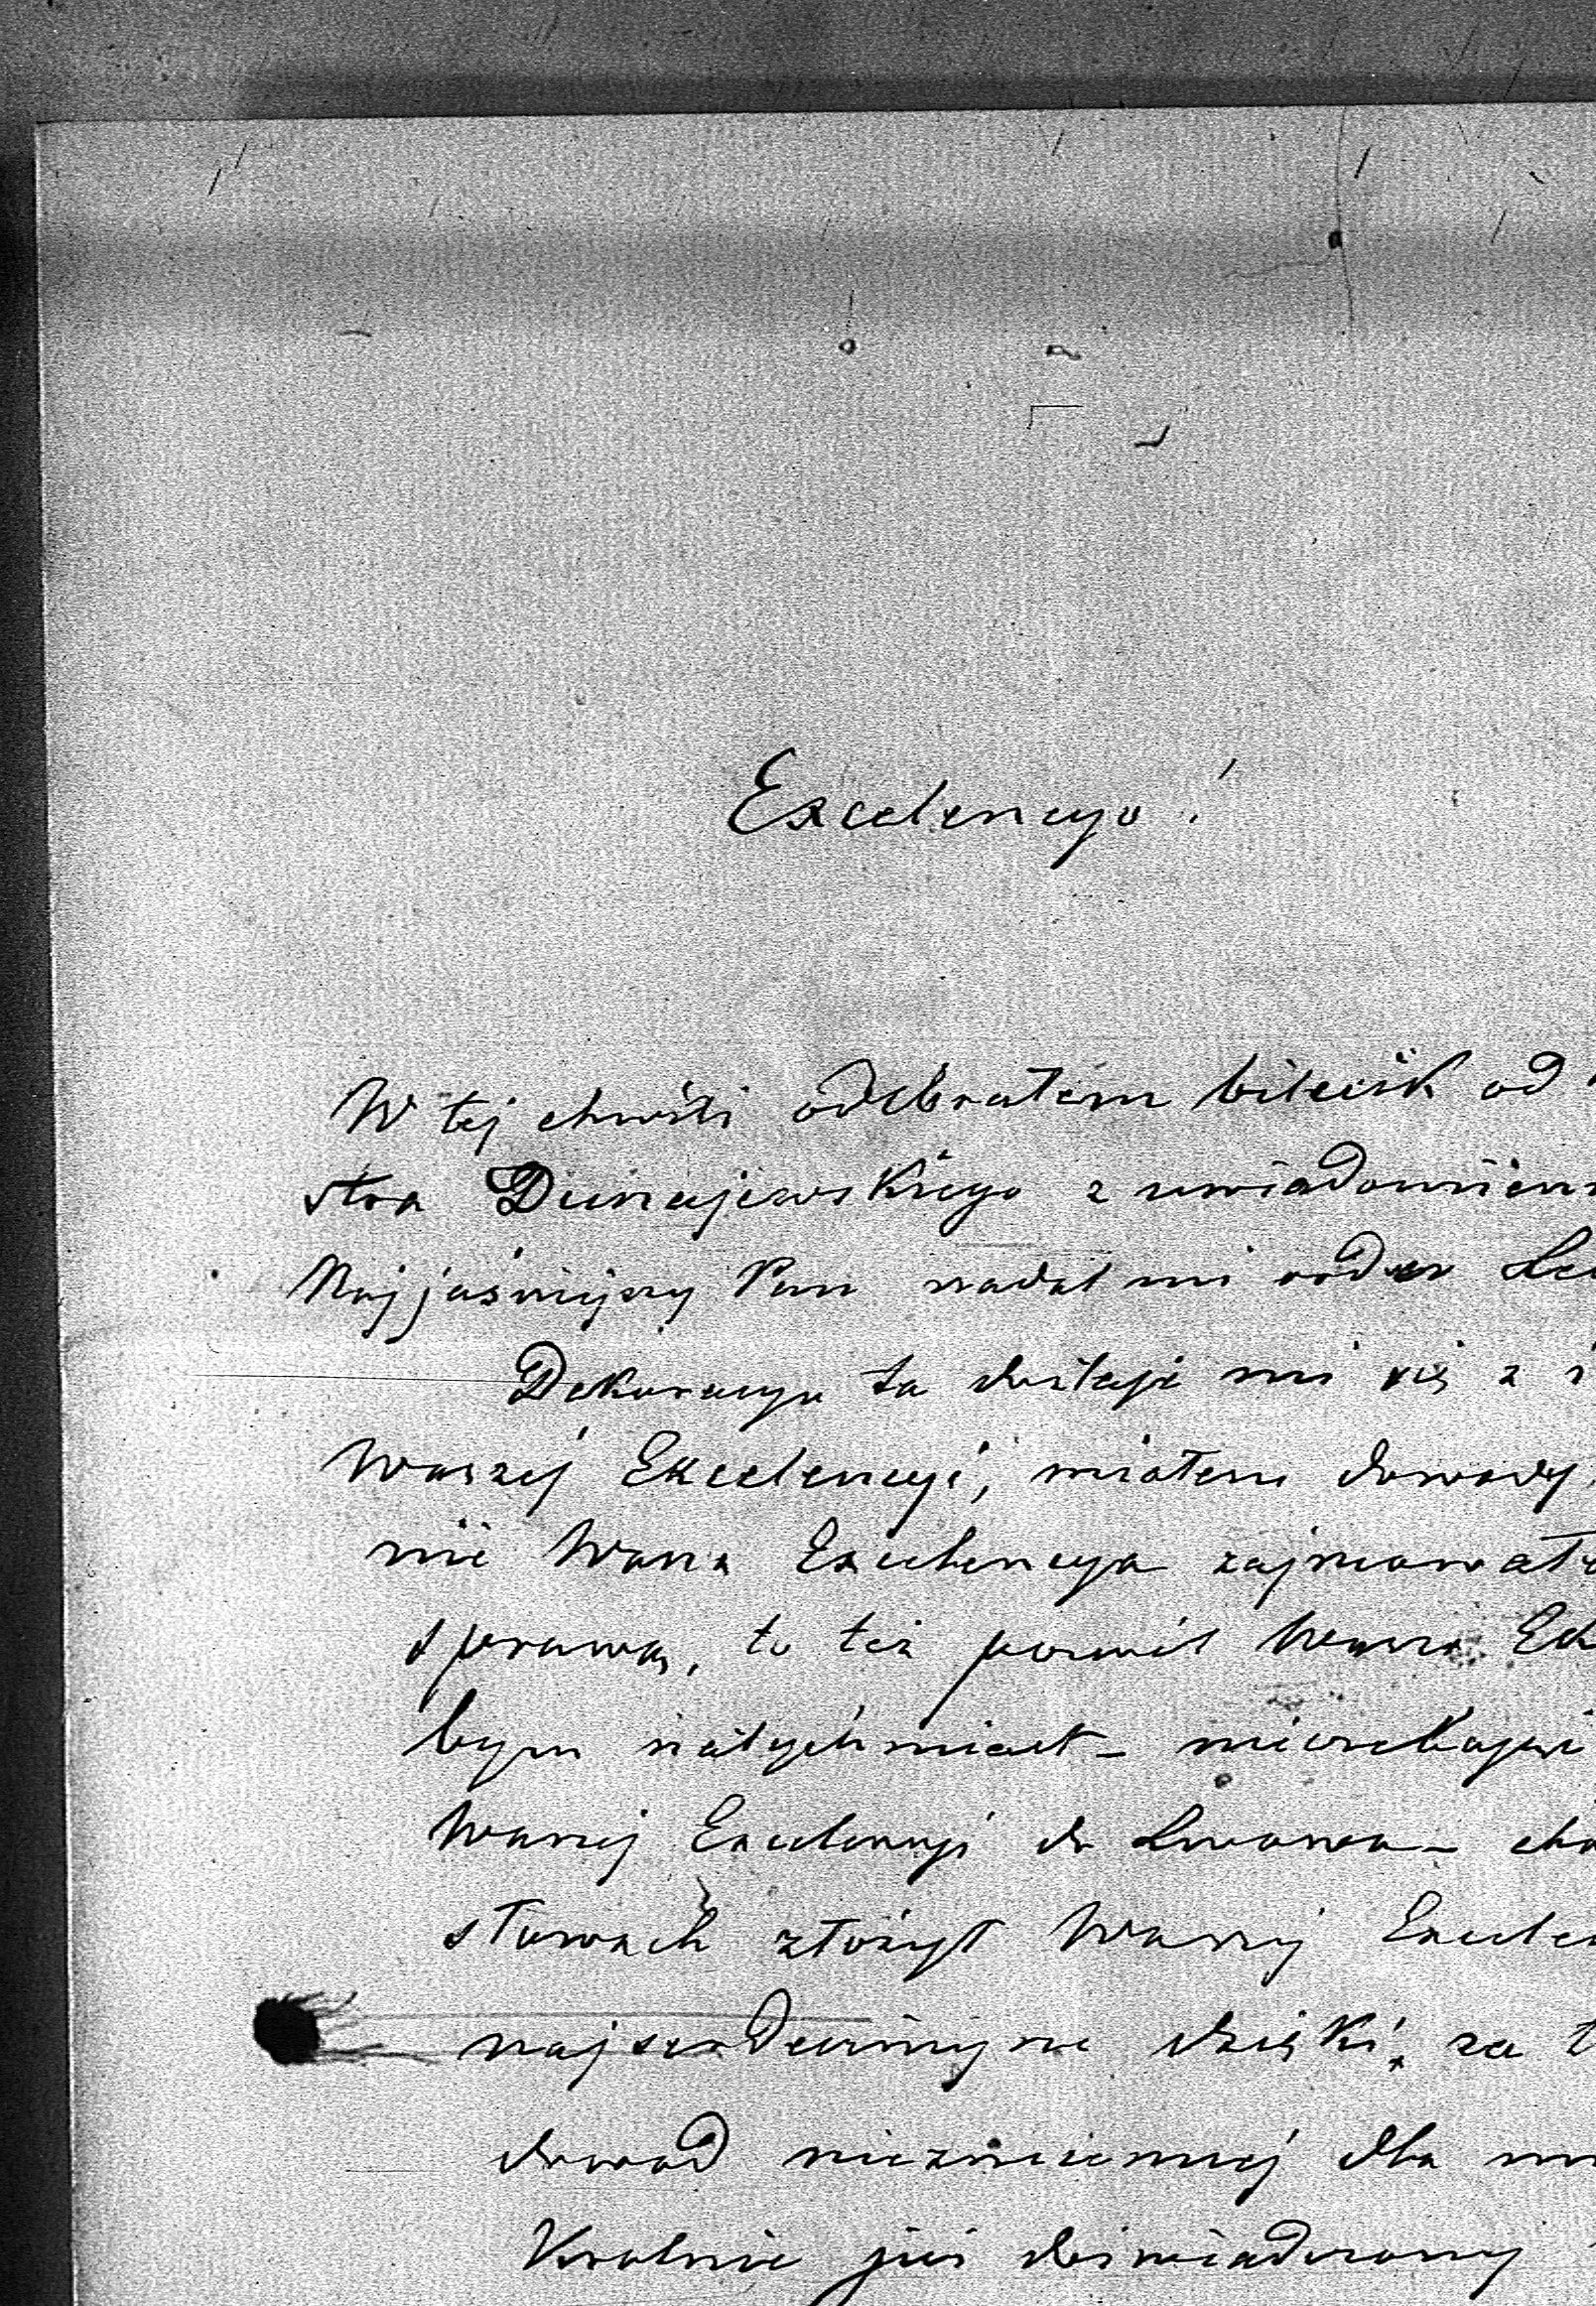 Excelencyo!
W tej chwili odebrałem bilecik od
stra Dunajewskiego z uwiadomieni
Najjaśniejszy Pan nadał mi order Le
Dekoracya ta dostaje mi się z
Waszej Excelencyi, miałem dowody
nie Wasza Excelencya zajmował
sprawą, to też pozwól Wasza Ex
bym natychmiast – nieczekając
Waszej Excelencyi do Lwowa – cho
słowach złożył Waszej Excelen
najserdeczniejsze dzięki, za t
dowód niezmiennej dla mn
Kralnie już doświadczony